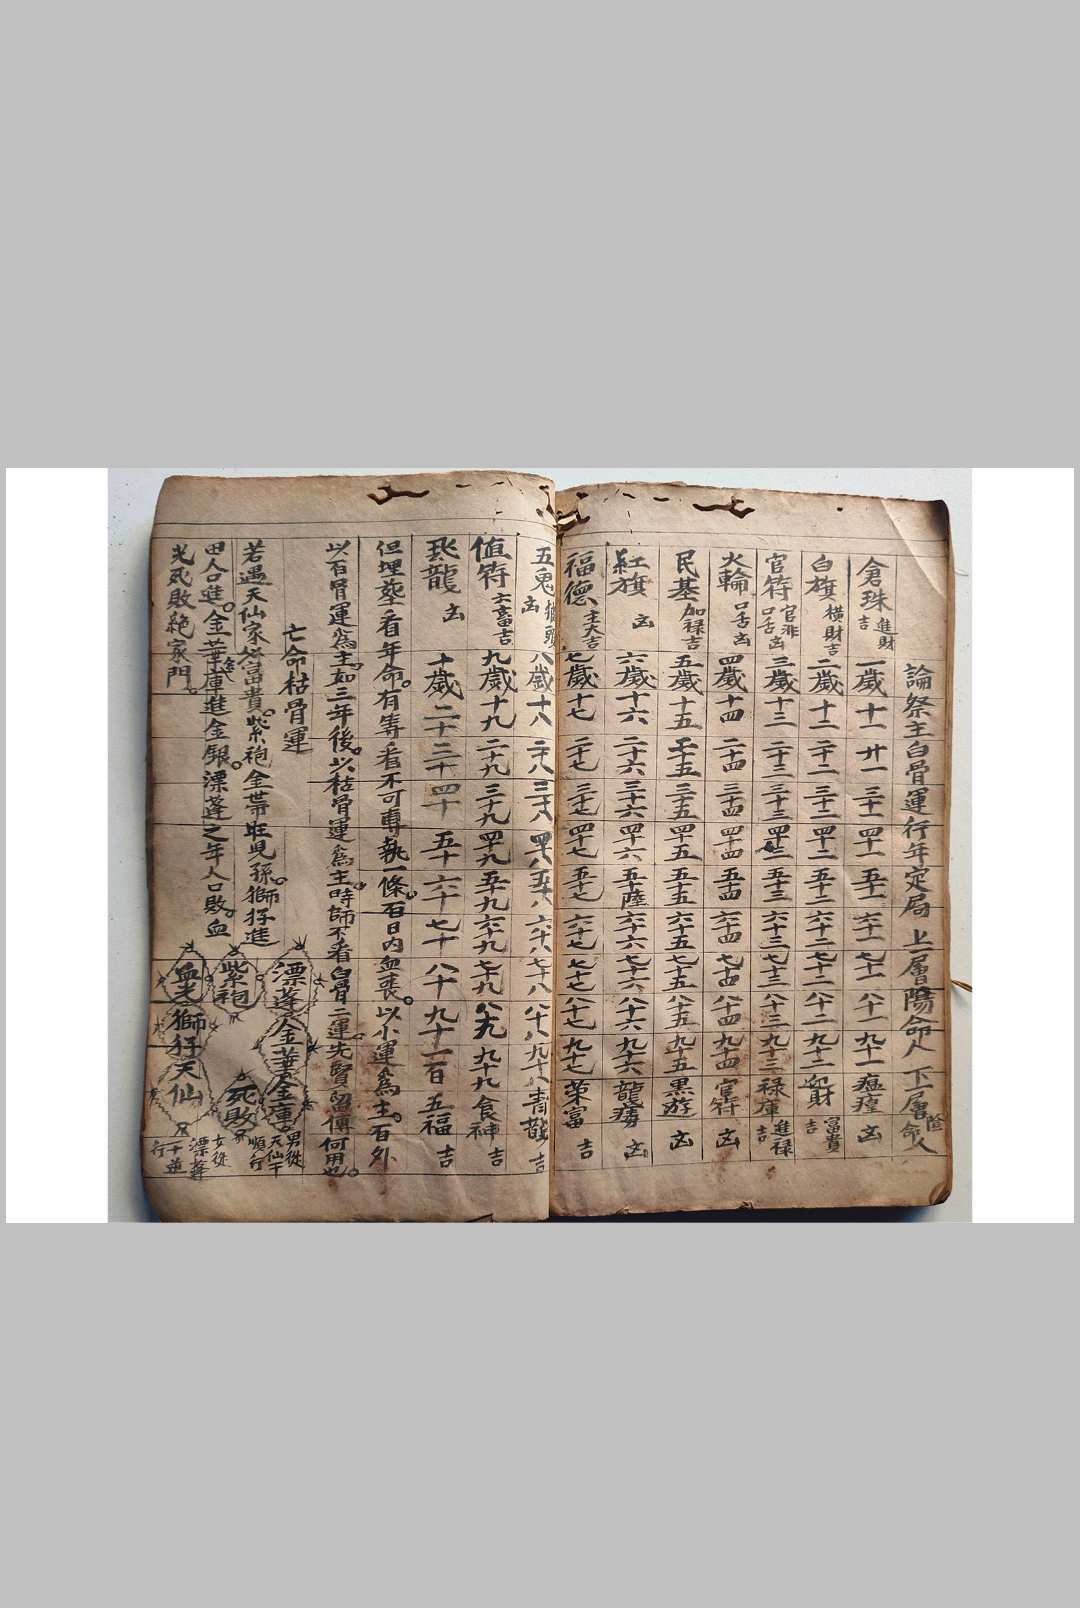 論祭主白骨運行年定局 上層陽命人 下層陰命人
倉珠 進財吉 一歲 十一 廿一 三十一 四十一 五十一 六十一 七十一 八十一 九十一 瘟瘴 凶
白旗 橫財吉 二歲 十二 二十二 三十二 四十二 五十二 六十二 七十二 八十二 九十二 財 富貴吉
官符 官非口舌凶 三歲 十三 二十三 三十三 四十三 五十三 六十三 七十三 八十三 九十三 祿庫 進祿吉
火輪 口舌凶 四歲 十四 二十四 三十四 四十四 五十四 六十四 七十四 八十四 九十四 官符 凶
民基 加祿吉 五歲 十五 二十五 三十五 四十五 五十五 六十五 七十五 八十五 九十五 黑游 凶
紅旗 凶 六歲 十六 二十六 三十六 四十六 五十陸 六十六 七十六 八十六 九十六 龍 凶
福德 主大吉 七歲 十七 二十七 三十七 四十七 五十七 六十七 七十七 八十七 九十七 榮富 吉
五鬼 頭凶 八歲 十八 二十八 三十八 四十八 五十八 六十八 七十八 八十八 九十八 青龍 吉
值符 六畜吉 九歲 十九 二十九 三十九 四十九 五十九 六十九 七十九 八十九 九十九 食神 吉
龍 凶 十歲 二十 三十 四十 五十 六十 七十 八十 九十 一百 五福 吉
但埋塟看年命。有等看不可專執一條。百日內血喪。以小運為主。百外
以百骨運為主。如三年後。以枯骨運為主。時師不看白骨二運。先賢留傳何用也。
亡命枯骨運
若遇天仙家富貴。紫袍金帶旺兒孫。獅孖進
田人口進。金華金庫進金銀。漂蓬之年人口敗。血
光死敗絕家門。
漂蓬 金華 金庫
紫袍 死敗
血光 獅孖 天仙
男從天仙干順行
女從漂蓬干逆行